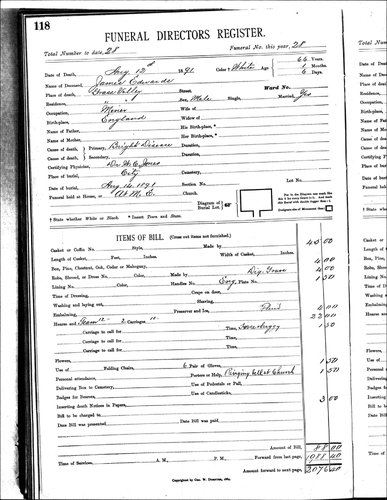 118
FUNERAL DIRECTORS REGISTER.
Total Number to date, 28 Funeral No. this year, 28
Date of Death, Aug 12th 1891 Color? White Age 66 Years.
1 Months.
6 Days.
Name of Deceased, James Edwards
Place of death, Grass Valley Ward No.
Residence, " " Sex, Male Single, Married, Yes
Occupation, Miner Wife of
Birth-place, England Widow of
Name of Father, His Birth-place,
Name of Mother, Her Birth-place,
Cause of death, Primary, Bright Disease Duration,
Cause of death, Secondary, Duration,
Certifying Physician, Dr W. C. Jones
Place of burial, City Cemetery,
Date of burial, Aug 14 1891 Section No. Lot No.
Funeral held at House, or At M. E. Diagram of Burial Lot
† State whether White or Black. * Insert Town and State.
ITEMS OF BILL. (Cross out items not furnished.)
Casket or Coffin, Style, Made by 40 00
Length of Casket, Feet, Inches. Width of Casket, Inches.
Box, Pine, Chestnut, Oak, Cedar or Mahogany, 4 00
Robe, Shroud, or Dress No. Color, Made by Dig. Grave 4 00
Lining No. Color, Handles No. Eng. Plate No. 1 50
Time of Dressing, Corps on door,
Washing and laying out, Shaving,
Embalming, Preserver and Ice, 4 00
Hearse and Team 12- 2 Carriages 10- 22 00
Carriage to call for Time, 1 50
Carriage to call for Time,
Carriage to call for Time,
Flowers, 1 50
Use of Folding Chairs, 6 Pair of Gloves, 1 50
Personal attendance, Porters or Help, Ringing bell at Church
Delivering Box to Cemetery, Use of Pedestals or Pall,
Badges for Bearers, Use of Candlesticks, 3 00
Inserting death Notices in Papers,
Bill to be charged to
Date Bill was presented Date Bill paid
Amount of Bill,
Time of Services, A. M., P. M. Forward from last page, 1988
Amount forward to next page, 2076
Copyrighted by Geo. W.